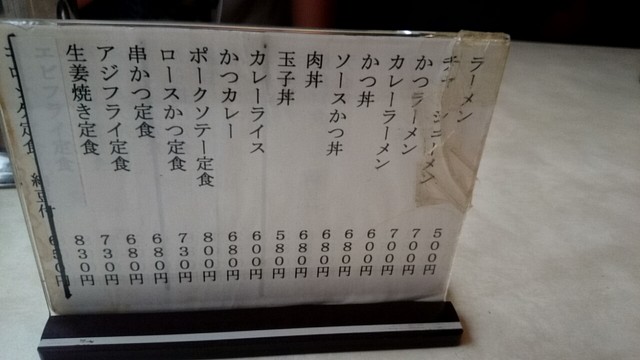 ラーメン 500円
メン 700円
かつラーメン 700円
カレーラーメン 600円
かつ丼 680円
ソースかつ丼 680円
肉丼 680円
玉子丼 580円
カレーライス 600円
かつカレー 680円
ポークソテー定食 800円
ロースかつ定食 730円
串かつ定食 680円
アジフライ定食 680円
生姜焼き定食 730円
エビフライ定食 830円
定食 納豆付 650円